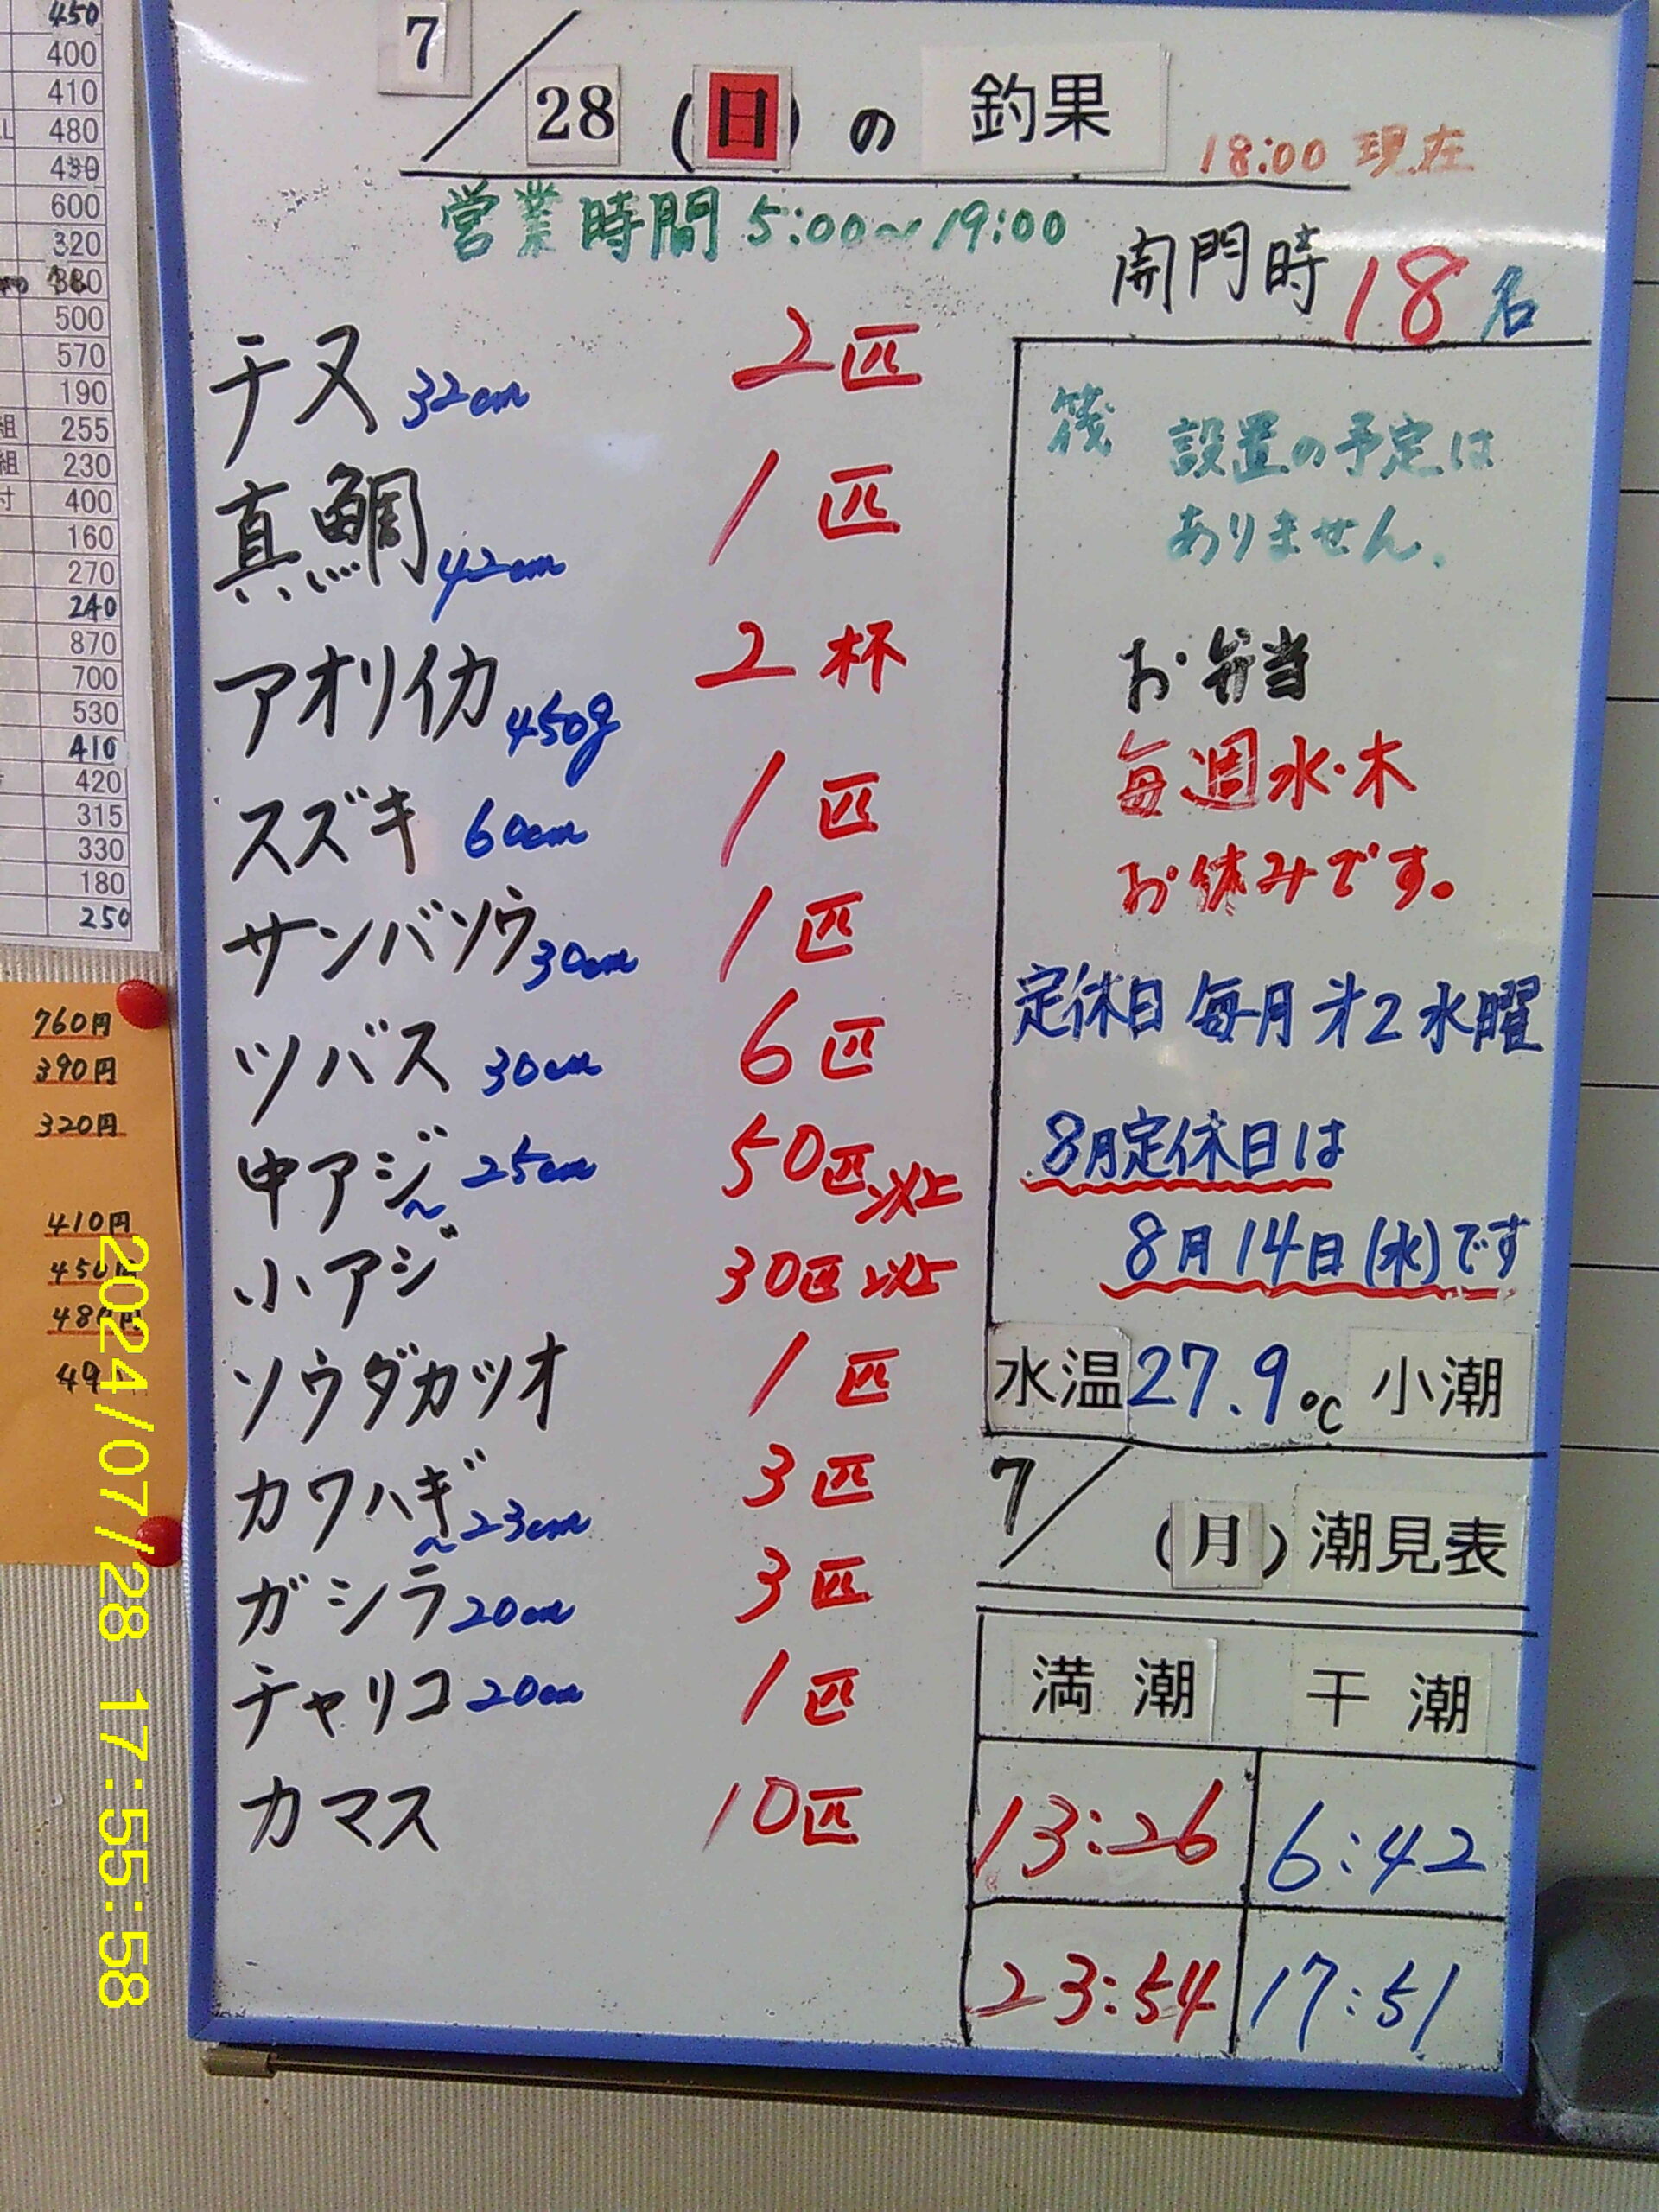 7/28(日)の 釣果 18:00 現在
営業時間 5:00～19:00
開門時 18名
チヌ 32cm 2匹
真鯛 42cm 1匹
アオリイカ 450g 2杯
スズキ 60cm 1匹
サンバソウ 30cm 1匹
ツバス 30cm 6匹
中アジ ~25cm 50匹以上
小アジ 30匹以上
ソウダカツオ 1匹
カワハギ ~23cm 3匹
ガシラ 20cm 3匹
チャリコ 20cm 1匹
カマス 10匹
筏 設置の予定は
ありません.
お弁当
毎週水・木
お休みです。
定休日 毎月才2水曜
8月定休日は
8月14日(水)です
水温 27.9℃ 小潮
7/ (月) 潮見表
満潮 干潮
13:26 6:42
23:54 17:51
450
400
410
480
430
600
320
380
500
570
190
組 255
組 230
寸 400
160
270
240
870
700
530
410
420
315
330
180
250
760円
390円
320円
410円
450円
480円
49
2024/07/28 17:55:58